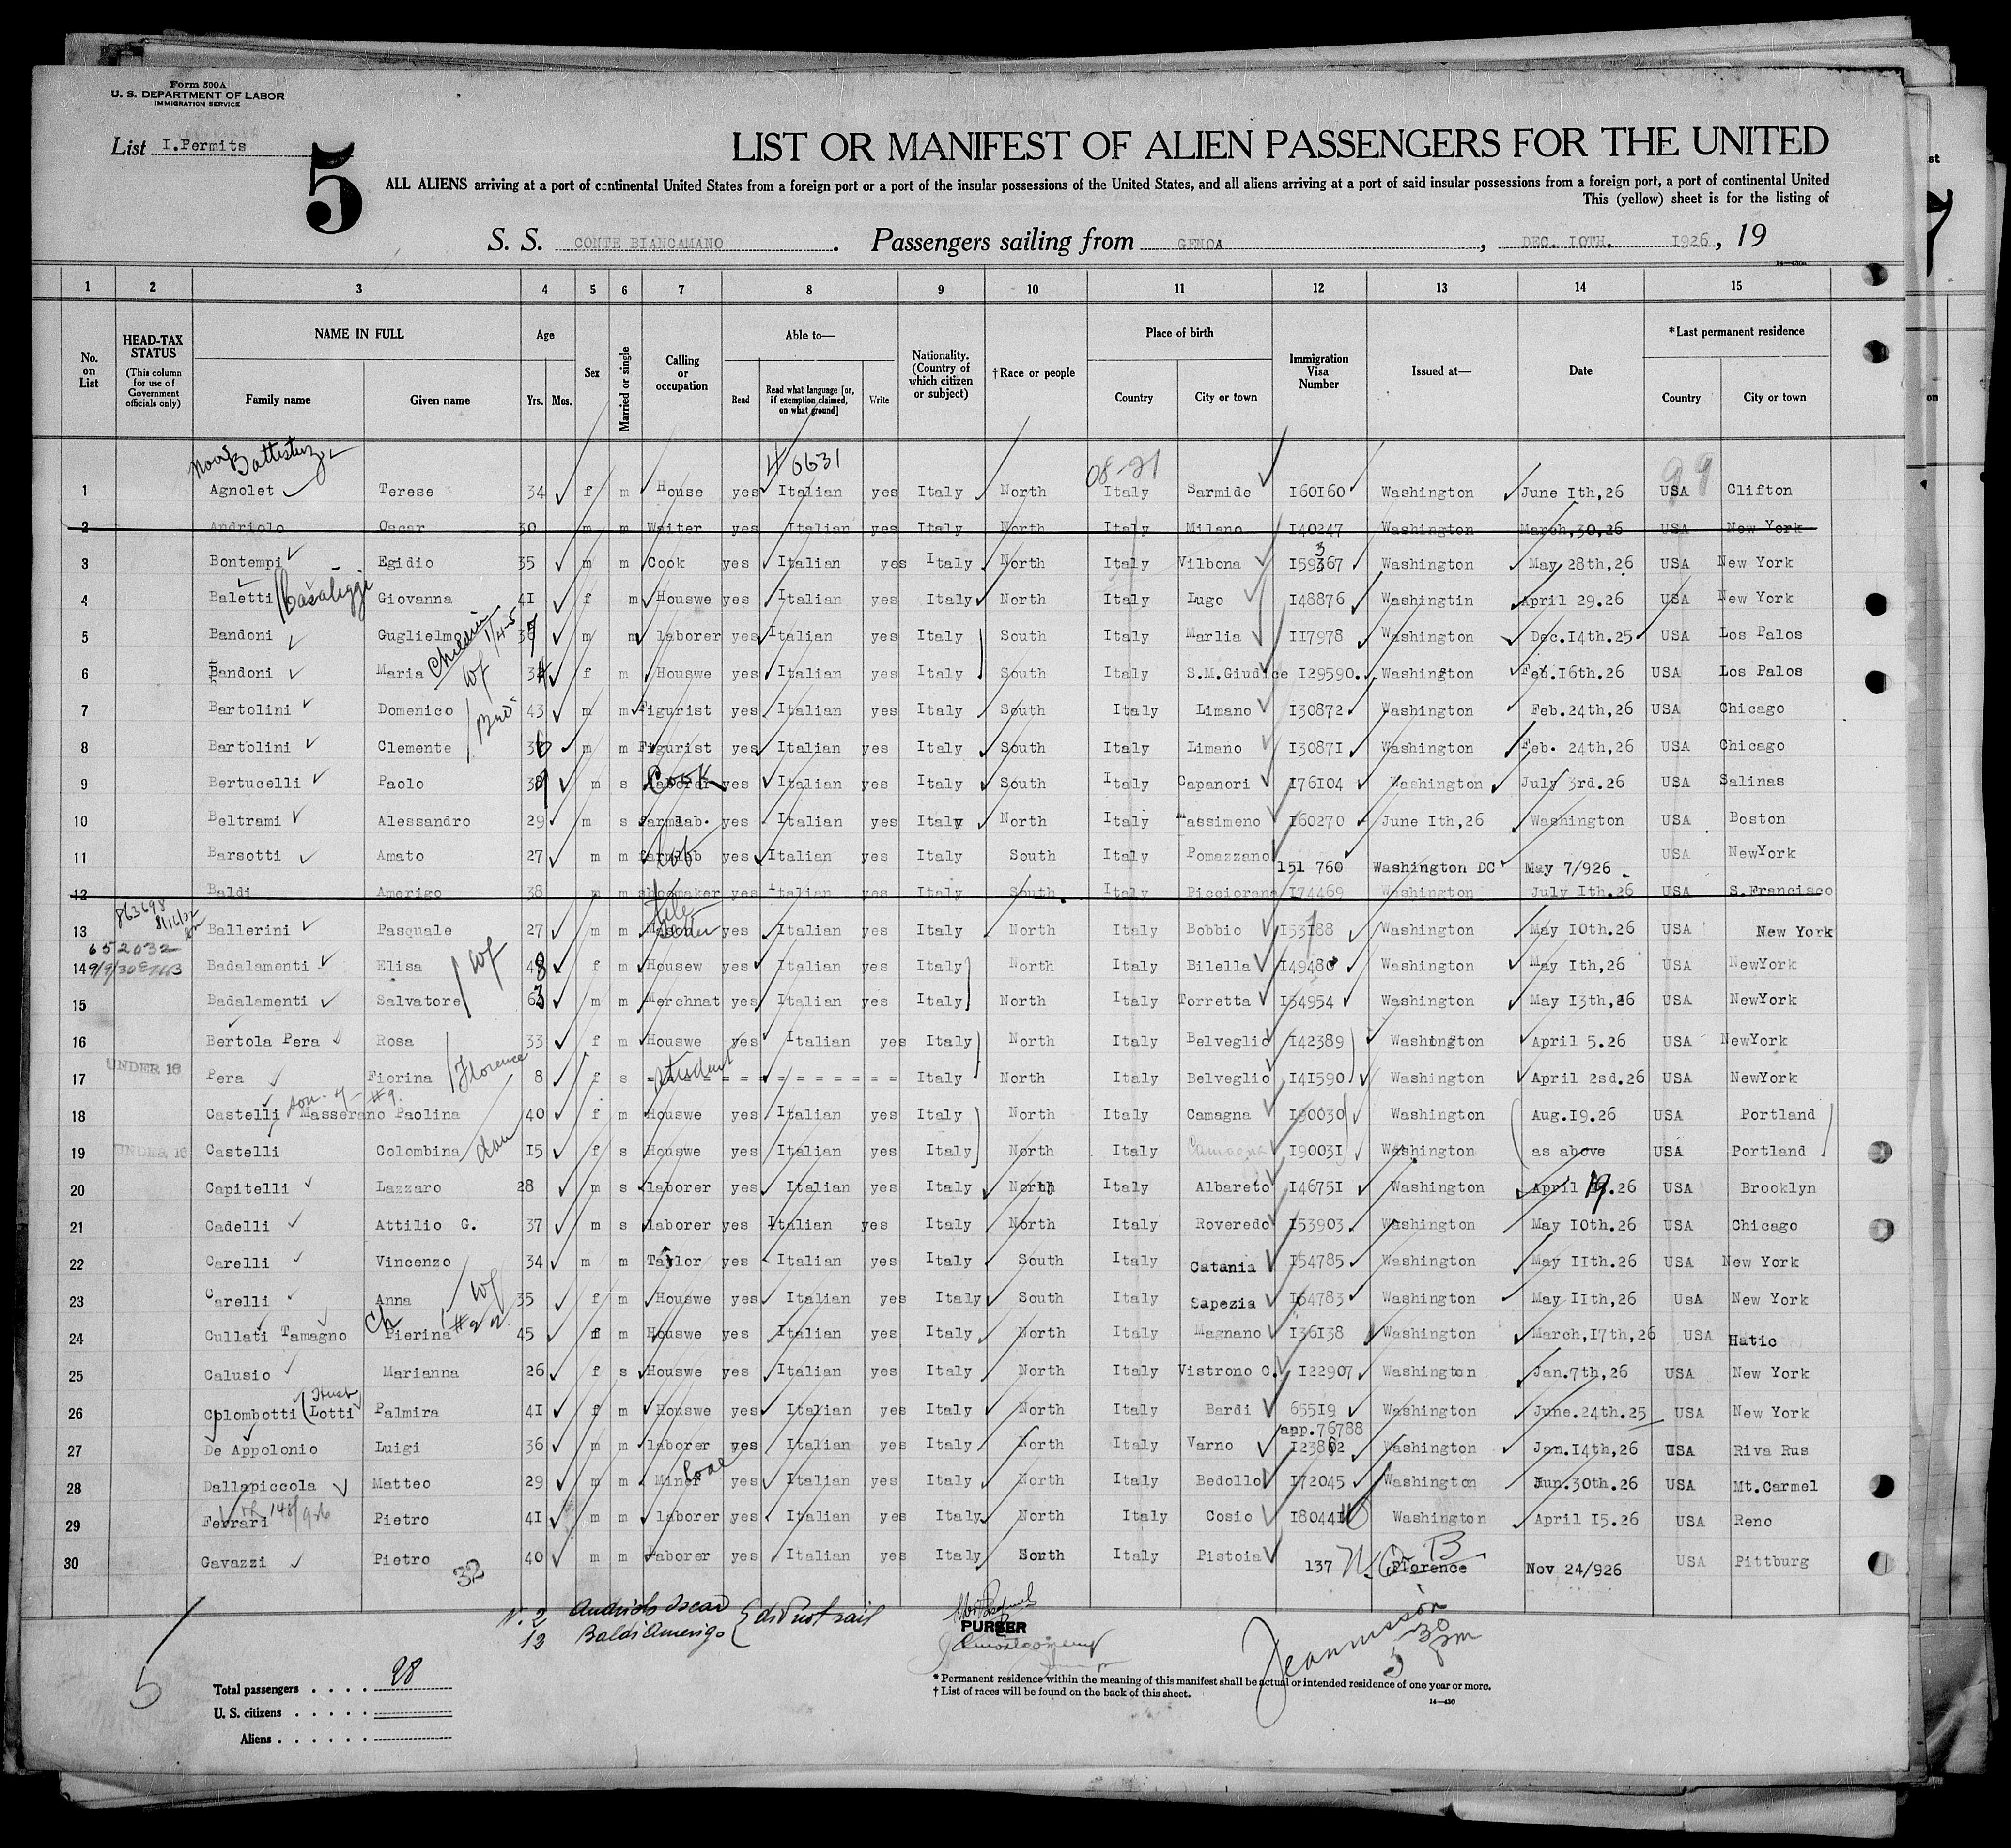 Form 500A
U. S. DEPARTMENT OF LABOR
IMMIGRATION SERVICE
List I.Permits
5
LIST OR MANIFEST OF ALIEN PASSENGERS FOR THE UNITED
ALL ALIENS arriving at a port of continental United States from a foreign port or a port of the insular possessions of the United States, and all aliens arriving at a port of said insular possessions from a foreign port, a port of continental United
This (yellow) sheet is for the listing of
S. S. CONTE BIANCAMANO. Passengers sailing from GENOA, DEC. IOTH. 1926, 19
1 2 3 4 5 6 7 8 9 10 11 12 13 14 15
No. on List
HEAD-TAX STATUS (This column for use of Government officials only)
NAME IN FULL Family name Given name
Age Yrs. Mos.
Sex
Married or single
Calling or occupation
Able to— Read Read what language [or, if exemption claimed, on what ground] Write
Nationality. (Country of which citizen or subject)
†Race or people
Place of birth Country City or town
Immigration Visa Number
Issued at—
Date
*Last permanent residence Country City or town
40631 08-21 99
1 Agnolet Terese 34 f m House yes Italian yes Italy North Italy Sarmide I60I60 Washington June Ith,26 USA Clifton
2 Andriolo Oscar 30 m m Waiter yes Italian yes Italy North Italy Milano I40247 Washington March,30,26 USA New York
3 Bontempi Egidio 35 m m Cook yes Italian yes Italy North Italy Vilbona I59367 Washington May 28th,26 USA New York
4 Baletti (Casaleggi Giovanna 4I f m Houswe yes Italian yes Italy North Italy Lugo I48876 Washingtin April 29.26 USA New York
5 Bandoni Guglielmo 37 m m laborer yes Italian yes Italy South Italy Marlia II7978 Washington Dec.I4th.25 USA Los Palos
6 Bandoni Maria Children wf 34 f m Houswe yes Italian yes Italy South Italy S.M.Giudice I29590. Washington Feb.I6th.26 USA Los Palos
7 Bartolini Domenico 43 m m Figurist yes Italian yes Italy South Italy Limano I30872 Washington Feb.24th,26 USA Chicago
8 Bartolini Clemente Bro 36 m m Figurist yes Italian yes Italy South Italy Limano I3087I Washington Feb. 24th,26 USA Chicago
9 Bertucelli Paolo 39 m s laborer Cook yes Italian yes Italy South Italy Capanori I76I04 Washington July 3rd.26 USA Salinas
10 Beltrami Alessandro 29 m s farmlab. yes Italian yes Italy North Italy Massimeno I60270 June Ith,26 Washington USA Boston
11 Barsotti Amato 27 m m farmlab lab yes Italian yes Italy South Italy Pomazzano 151 760 Washington DC May 7/926 USA NewYork
12 Baldi Amerigo 38 m m shoemaker yes Italian yes Italy South Italy Picciorana I74469 Washington July Ith.26 USA S.Francisco
863698
13 Ballerini Pasquale 27 m m Mason tile setter yes Italian yes Italy North Italy Bobbio I53I88 Washington May IOth.26 USA New York
652032
14 Badalamenti Elisa wf 48 f m Housew yes Italian yes Italy North Italy Bilella I49480 Washington May Ith,26 USA NewYork
15 Badalamenti Salvatore 63 m m Merchnat yes Italian yes Italy North Italy Torretta I54954 Washington May I3th,26 USA NewYork
16 Bertola Pera Rosa 33 f m Houswe yes Italian yes Italy North Italy Belveglio I42389 Washington April 5.26 USA NewYork
17 UNDER 16 Pera Fiorina Florence 8 f s student Italy North Italy Belveglio I4I590 Washington April 2sd.26 USA NewYork
18 Castelli Masserano Paolina 40 f m Houswe yes Italian yes Italy North Italy Camagna I90030 Washington Aug.I9.26 USA Portland
19 UNDER 16 Castelli Colombina dau I5 f s Houswe yes Italian yes Italy North Italy Camagna I9003I Washington as above USA Portland
20 Capitelli Lazzaro 28 m s laborer yes Italian yes Italy North Italy Albareto I4675I Washington April 19.26 USA Brooklyn
21 Cadelli Attilio G. 37 m s laborer yes Italian yes Italy North Italy Roveredo I53903 Washington May IOth.26 USA Chicago
22 Carelli Vincenzo 34 m m Taylor yes Italian yes Italy South Italy Catania I54785 Washington May IIth.26 USA New York
23 Carelli Anna wf #22 35 f m Houswe yes Italian yes Italy South Italy Sapezia I64783 Washington May IIth,26 UsA New York
24 Cullati Tamagno Ch Pierina 45 f m Houswe yes Italian yes Italy North Italy Magnano I36I38 Washington March,I7th,26 USA Hatic
25 Calusio Marianna 26 f s Houswe yes Italian yes Italy North Italy Vistrono C. I22907 Washington Jan.7th,26 USA New York
26 Colombotti (Lotti Palmira 4I f m Houswe yes Italian yes Italy North Italy Bardi 655I9 Washington June.24th.25 USA New York
app.76788
27 De Appolonio Luigi 36 m m laborer yes Italian yes Italy North Italy Varno I23862 Washington Jan.I4th,26 USA Riva Rus
28 Dallapiccola Matteo 29 m m Miner Coal yes Italian yes Italy North Italy Bedollo I72045 Washington Jun.30th.26 USA Mt.Carmel
29 Ferrari Pietro 4I m m laborer yes Italian yes Italy North Italy Cosio I8044I Washington April I5.26 USA Reno
30 Gavazzi Pietro 40 m m laborer yes Italian yes Italy South Italy Pistoia 137 N.Q. Florence Nov 24/926 USA Pittburg
32
N. 2 Andriolo Oscar
12 Baldi Amerigo { did not sail
PURSER
Jeannisson 5 30 pm
5
Total passengers 28
U. S. citizens
Aliens
* Permanent residence within the meaning of this manifest shall be actual or intended residence of one year or more.
† List of races will be found on the back of this sheet.
14—430